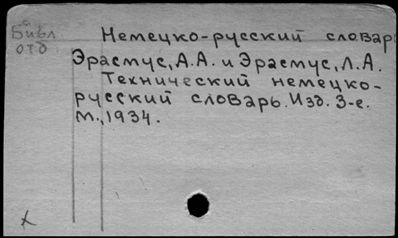 Библ
отд
Немецко-русский словар
Эрасмус, А.А. и Эрасмус, Л.А.
Технический немецко-
русский словарь. Изд. 3-е.
М., 1934.